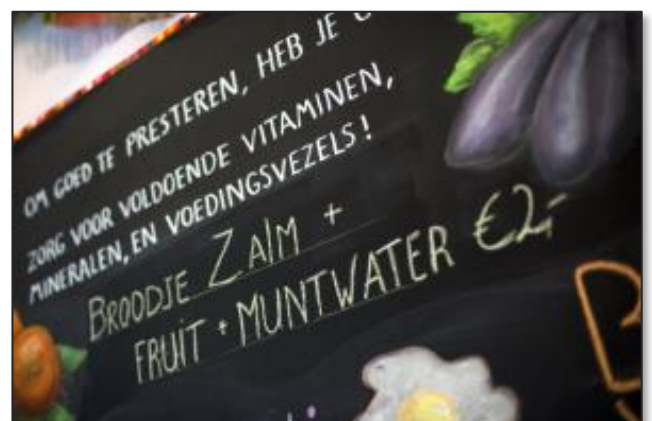 OM GOED TE PRESTEREN, HEB JE
ZORG VOOR VOLDOENDE VITAMINEN,
MINERALEN, EN VOEDINGSVEZELS!
BROODJE ZALM +
FRUIT + MUNTWATER €2,-
B